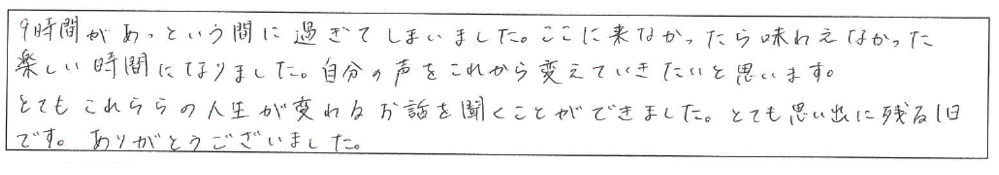 9時間があっという間に過ぎてしまいました。ここに来なかったら味わえなかった
楽しい時間になりました。自分の声をこれから変えていきたいと思います。
とてもこれらの人生が変わるお話を聞くことができました。とても思い出に残る1日
です。ありがとうございました。